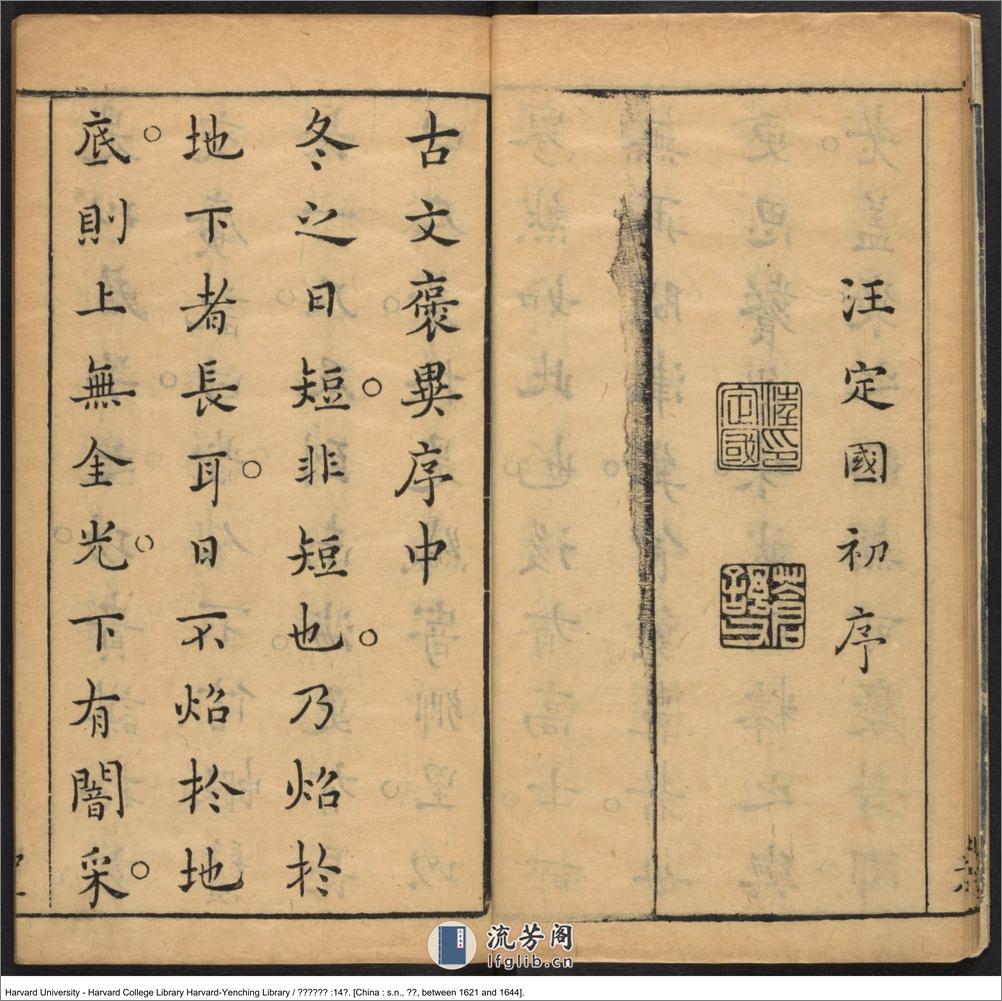 汪定國初序
汪印
定國
蒼舒
古文褒異序中
冬之日短非短也乃焰於
地下者長耳日不焰於地
底則上無全光下有闇采
流芳阁
lfglib.cn
Harvard University - Harvard College Library Harvard-Yenching Library / ?????? :14?. [China : s.n., ??, between 1621 and 1644].